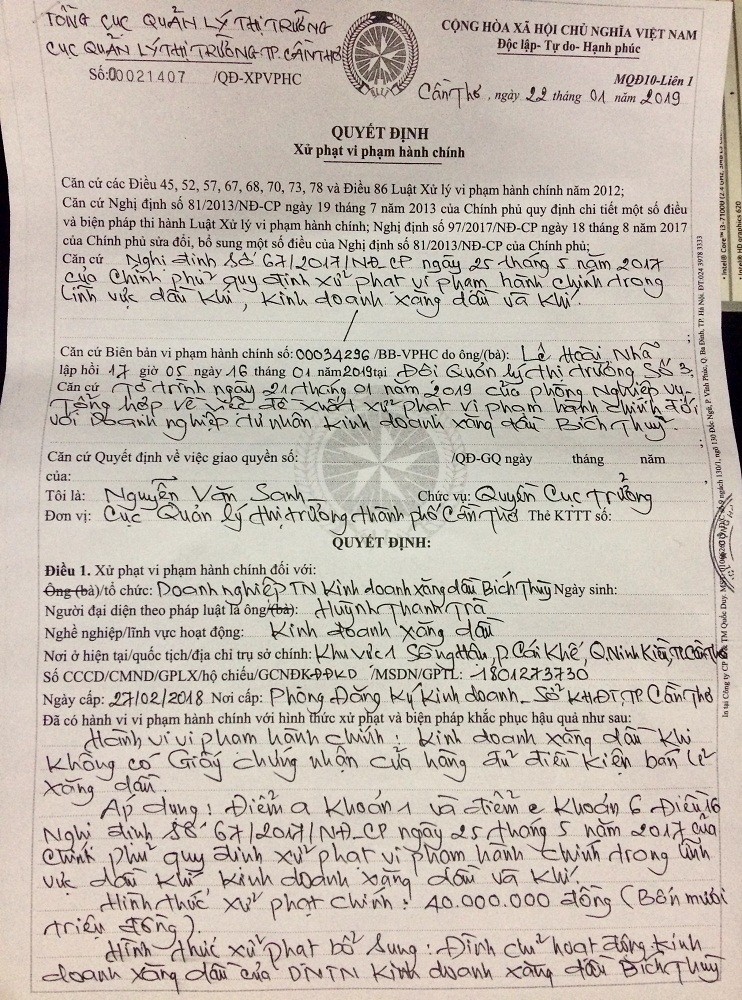 TỔNG CỤC QUẢN LÝ THỊ TRƯỜNG
CỤC QUẢN LÝ THỊ TRƯỜNG TP. CẦN THƠ
Số: 00021407 /QĐ-XPVPHC
CỘNG HÒA XÃ HỘI CHỦ NGHĨA VIỆT NAM
Độc lập- Tự do- Hạnh phúc
MQĐ10-Liên 1
Cần Thơ, ngày 22 tháng 01 năm 2019
QUYẾT ĐỊNH
Xử phạt vi phạm hành chính
Căn cứ các Điều 45, 52, 57, 67, 68, 70, 73, 78 và Điều 86 Luật Xử lý vi phạm hành chính năm 2012;
Căn cứ Nghị định số 81/2013/NĐ-CP ngày 19 tháng 7 năm 2013 của Chính phủ quy định chi tiết một số điều
và biện pháp thi hành Luật Xử lý vi phạm hành chính; Nghị định số 97/2017/NĐ-CP ngày 18 tháng 8 năm 2017
của Chính phủ sửa đổi, bổ sung một số điều của Nghị định số 81/2013/NĐ-CP của Chính phủ;
Căn cứ Nghị định số 67/2017/NĐ_CP ngày 25 tháng 5 năm 2017
của Chính phủ quy định xử phạt vi phạm hành chính trong
lĩnh vực dầu khí, kinh doanh xăng dầu và khí.
Căn cứ Biên bản vi phạm hành chính số: 00034296 /BB-VPHC do ông/(bà): Lê Hoài Nhã
lập hồi 17 giờ 05 ngày 16 tháng 01 năm 2019 tại Đội Quản lý thị trường số 3.
Căn cứ Tờ trình ngày 21 tháng 01 năm 2019 của phòng Nghiệp vụ_
Tổng hợp về việc đề xuất xử phạt vi phạm hành chính đối
với Doanh nghiệp tư nhân kinh doanh xăng dầu Bích Thuỷ.
Căn cứ Quyết định về việc giao quyền số: /QĐ-GQ ngày tháng năm
của:
Tôi là: Nguyễn Văn Sanh_ Chức vụ: Quyền Cục trưởng
Đơn vị: Cục Quản lý thị trường thành phố Cần Thơ Thẻ KTTT số:
QUYẾT ĐỊNH:
Điều 1. Xử phạt vi phạm hành chính đối với:
Ông (bà)/tổ chức: Doanh nghiệp TN kinh doanh xăng dầu Bích Thuỷ Ngày sinh:
Người đại diện theo pháp luật là ông/(bà): Huỳnh Thanh Trà
Nghề nghiệp/lĩnh vực hoạt động: Kinh doanh xăng dầu
Nơi ở hiện tại/quốc tịch/địa chỉ trụ sở chính: Khu vực 1 Sông Hậu, P. Cái Khế, Q. Ninh Kiều, TP. Cần Thơ
Số CCCD/CMND/GPLX/hộ chiếu/GCNĐKĐDKD /MSDN/GPTL: 1801273730
Ngày cấp: 27/02/2018 Nơi cấp: Phòng Đăng ký kinh doanh_ Sở KHĐT, TP. Cần Thơ
Đã có hành vi vi phạm hành chính với hình thức xử phạt và biện pháp khắc phục hậu quả như sau:
Hành vi vi phạm hành chính: Kinh doanh xăng dầu khi
không có Giấy chứng nhận cửa hàng đủ điều kiện bán lẻ
xăng dầu.
Áp dụng: Điểm a khoản 1 và điểm e khoản 6 Điều 16
Nghị định số 67/2017/NĐ_CP ngày 25 tháng 5 năm 2017 của
Chính phủ quy định xử phạt vi phạm hành chính trong lĩnh
vực dầu khí kinh doanh xăng dầu và khí.
Hình thức xử phạt chính: 40.000.000 đồng (Bốn mươi
triệu đồng).
Hình thức xử phạt bổ sung: Đình chỉ hoạt động kinh
doanh xăng dầu của DNTN kinh doanh xăng dầu Bích Thuỷ